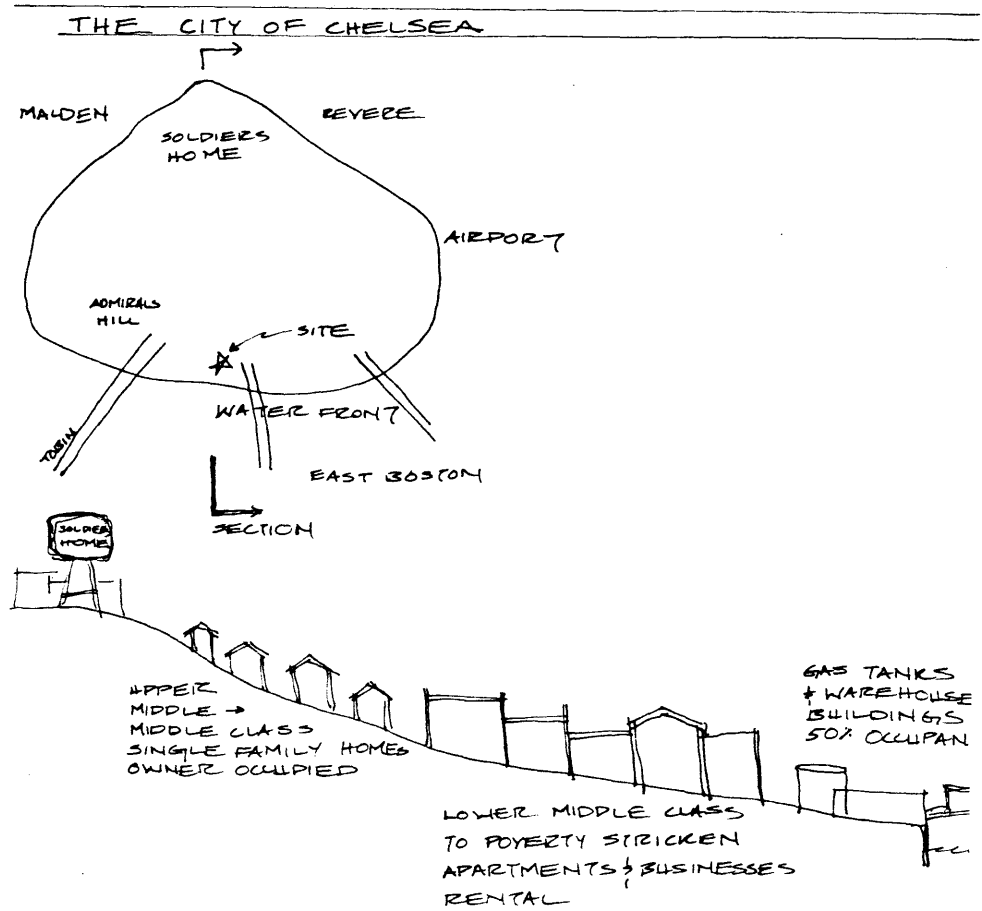 THE CITY OF CHELSEA
MALDEN
REVERE
SOLDIERS
HOME
AIRPORT
ADMIRALS
HILL
SITE
WATER FRONT
TOBIN
EAST BOSTON
SECTION
SOLDIER
HOME
UPPER
MIDDLE →
MIDDLE CLASS
SINGLE FAMILY HOMES
OWNER OCCUPIED
GAS TANKS
& WAREHOUSE
BUILDINGS
50% OCCUPAN
LOWER MIDDLE CLASS
TO POVERTY STRICKEN
APARTMENTS & BUSINESSES
RENTAL